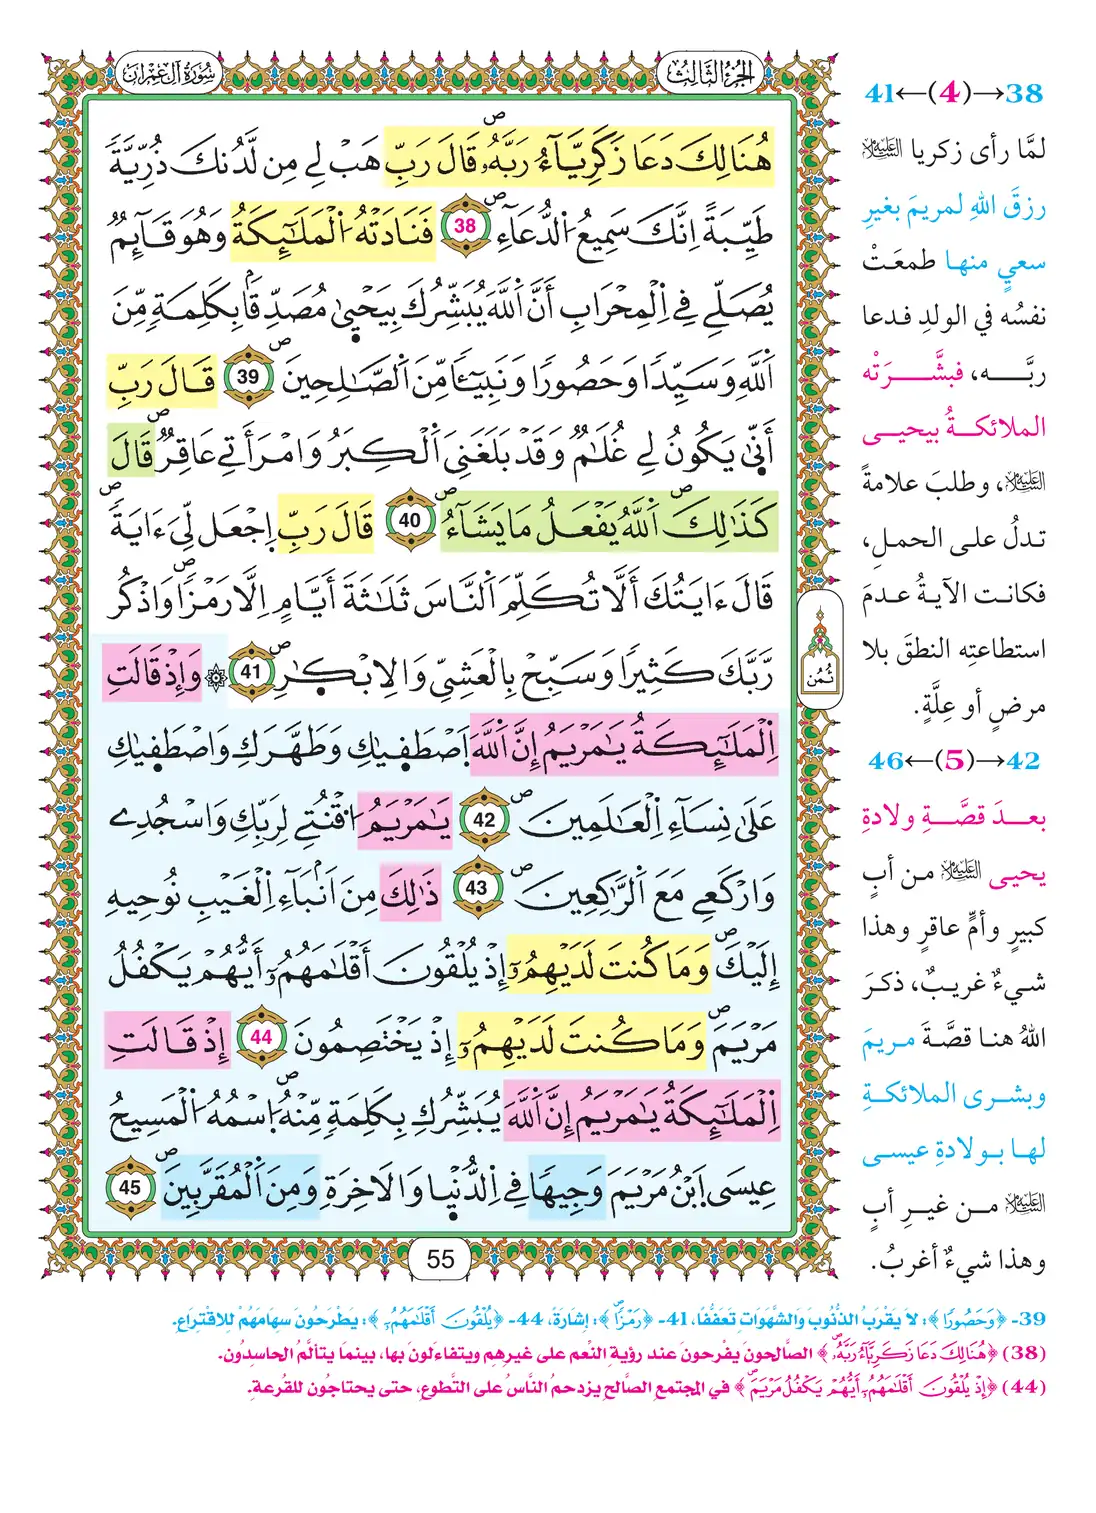 سُورَةُ آلِ عِمْرَان
الجُزْءُ الثَّالِثُ
هُنَالِكَ دَعَا زَكَرِيَّآءُ رَبَّهُۥ قَالَ رَبِّ هَبْ لِے مِن لَّدُنكَ ذُرِّيَّةٗ
طَيِّبَةً اِنَّكَ سَمِيعُ اُ۬لدُّعَآءِ 38 فَنَادَتْهُ اُ۬لْمَلَٰٓئِكَةُ وَهُوَ قَآئِمٞ
يُصَلِّے فِے اِ۬لْمِحْرَابِ أَنَّ اَ۬للَّهَ يُبَشِّرُكَ بِيَحْي۪يٰ مُصَدِّقاَۢ بِكَلِمَةٖ مِّنَ
اَ۬للَّهِ وَسَيِّدٗا وَحَصُورٗا وَنَبِيٓـٔٗا مِّنَ اَ۬لصَّٰلِحِينَ 39 قَالَ رَبِّ
أَنّ۪يٰ يَكُونُ لِے غُلَٰمٞ وَقَدْ بَلَغَنِيَ اَ۬لْكِبَرُ وَامْرَأَتِے عَاقِرٞ قَالَ
كَذَٰلِكَ اَ۬للَّهُ يَفْعَلُ مَا يَشَآءُ 40 قَالَ رَبِّ اِ۪جْعَل لِّيَ ءَايَةٗ
قَالَ ءَايَتُكَ أَلَّا تُكَلِّمَ اَ۬لنَّاسَ ثَلَٰثَةَ أَيَّامٍ اِلَّا رَمْزٗا وَاذْكُر
رَّبَّكَ كَثِيرٗا وَسَبِّحْ بِالْعَشِيِّ وَالِابْكٰ۪رِ 41 ۞ وَإِذْ قَالَتِ
اِ۬لْمَلَٰٓئِكَةُ يَٰمَرْيَمُ إِنَّ اَ۬للَّهَ اَ۪صْطَف۪يٰكِ وَطَهَّرَكِ وَاصْطَف۪يٰكِ
عَلَىٰ نِسَآءِ اِ۬لْعَٰلَمِينَ 42 يَٰمَرْيَمُ اُ۟قْنُتِے لِرَبِّكِ وَاسْجُدِے
وَارْكَعِے مَعَ اَ۬لرَّٰكِعِينَ 43 ذَٰلِكَ مِنَ اَنۢبَآءِ اِ۬لْغَيْبِ نُوحِيهِ
إِلَيْكَ وَمَا كُنتَ لَدَيْهِمُۥٓ إِذْ يُلْقُونَ أَقْلَٰمَهُمُۥٓ أَيُّهُمْ يَكْفُلُ
مَرْيَمَ وَمَا كُنتَ لَدَيْهِمُۥٓ إِذْ يَخْتَصِمُونَ 44 إِذْ قَالَتِ
اِ۬لْمَلَٰٓئِكَةُ يَٰمَرْيَمُ إِنَّ اَ۬للَّهَ يُبَشِّرُكِ بِكَلِمَةٖ مِّنْهُ اُ۪سْمُهُ اُ۬لْمَسِيحُ
عِيسَى اَ۪بْنُ مَرْيَمَ وَجِيهٗا فِے اِ۬لدُّنْي۪ا وَالَاخِرَةِ وَمِنَ اَ۬لْمُقَرَّبِينَ 45
ثُمُن
55
38→(4)←41
لمَّا رأى زكريا عليه السلام
رزقَ اللهِ لمريمَ بغيرِ
سعيٍ منها طمعَتْ
نفسُه في الولدِ فدعا
ربَّــه، فبشَّرَتْه
الملائكةُ بيحيى
عليه السلام، وطلبَ علامةً
تدلُّ على الحملِ،
فكانت الآيةُ عدمَ
استطاعتِه النطقَ بلا
مرضٍ أو عِلَّةٍ.
42→(5)←46
بعدَ قصَّةِ ولادةِ
يحيى عليه السلام من أبٍ
كبيرٍ وأمٍّ عاقرٍ وهذا
شيءٌ غريبٌ، ذكرَ
اللهُ هنا قصَّةَ مريمَ
وبشرى الملائكةِ
لها بولادةِ عيسى
عليه السلام من غيرِ أبٍ
وهذا شيءٌ أغربُ.
39- ﴿وَحَصُورٗا﴾: لاَ يَقْرَبُ الذُّنُوبَ وَالشَّهَوَاتِ تَعَفُّفًا، 41- ﴿رَمْزٗا﴾: إِشَارَةً، 44- ﴿يُلْقُونَ أَقْلَٰمَهُمُۥ﴾: يَطْرَحُونَ سِهَامَهُمْ لِلاِقْتِرَاعِ.
(38) ﴿هُنَالِكَ دَعَا زَكَرِيَّآءُ رَبَّهُۥ﴾ الصَّالحونَ يفْرحونَ عند رؤيةِ النِّعم على غيرِهم ويتفاءلونَ بها، بينمَا يتألَّمُ الحاسدُون.
(44) ﴿إِذْ يُلْقُونَ أَقْلَٰمَهُمُۥٓ أَيُّهُمْ يَكْفُلُ مَرْيَمَ﴾ في المجتمعِ الصَّالحِ يزدحمُ النَّاسُ على التَّطوعِ، حتى يحتاجُون للقُرعةِ.